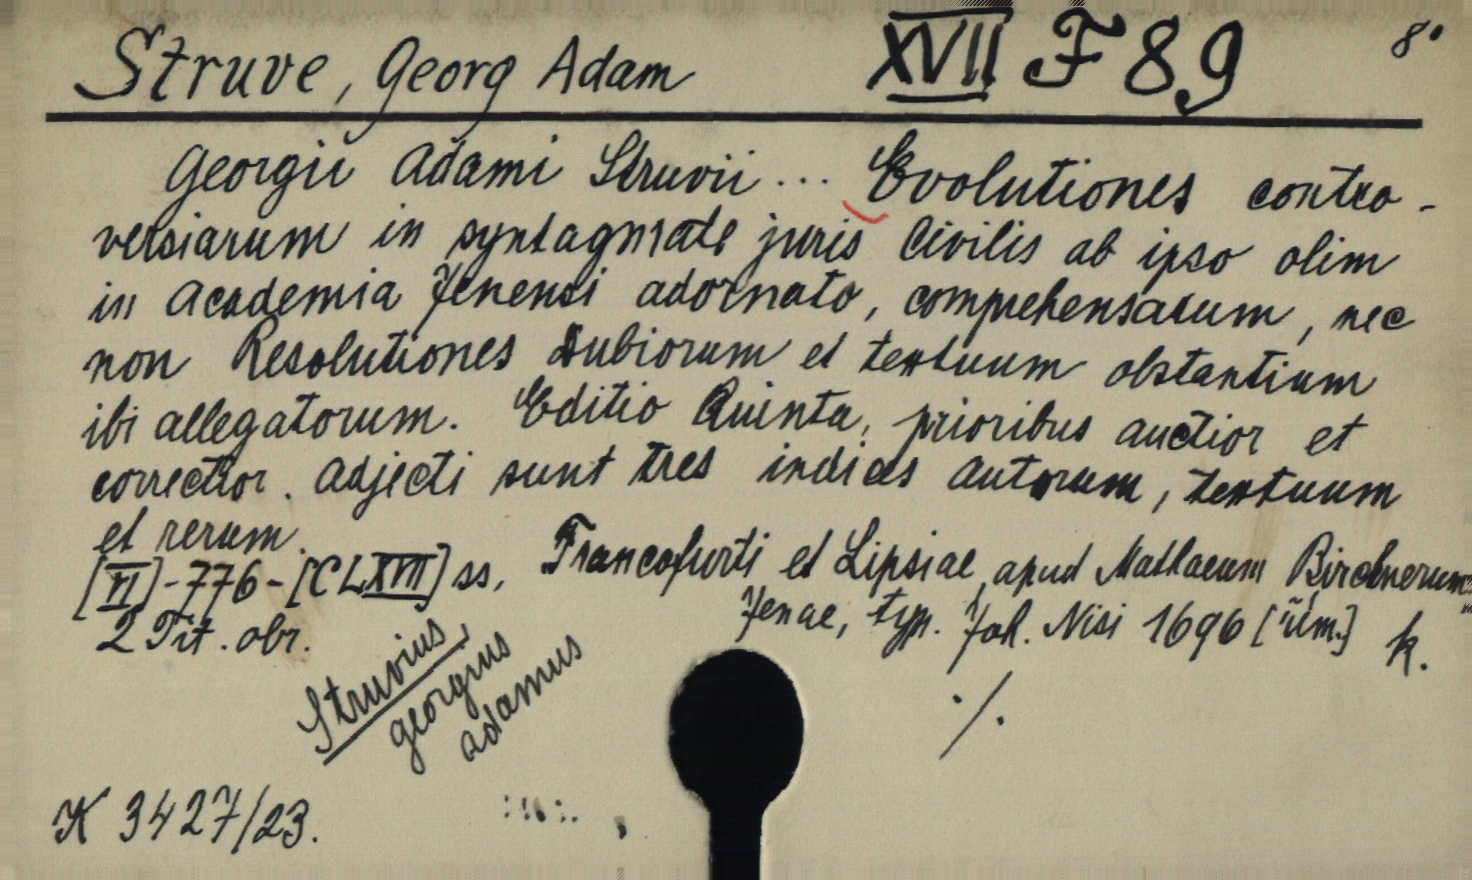 Struve, Georg Adam XVII F 89 8°
Georgii Adami Struvii ... Evolutiones contro-
versiarum in syntagmate juris Civilis ab ipso olim
in Academia Jenensi adornato, comprehensarum, nec
non Resolutiones Dubiorum et textuum obstantium
ibi allegatorum. Editio Quinta, prioribus auctior et
correctior. Adjecti sunt tres indices autorum, textuum
et rerum.
[VI]-776-[CLXVII] ss, Francofurti et Lipsiae, apud Mathaeum Bircknerum
Jenae, typ. Joh. Nisi 1696 [üim.] k.
2 Tit. obr.
Struvius
georgius
adamus
./.
K 3427/23.